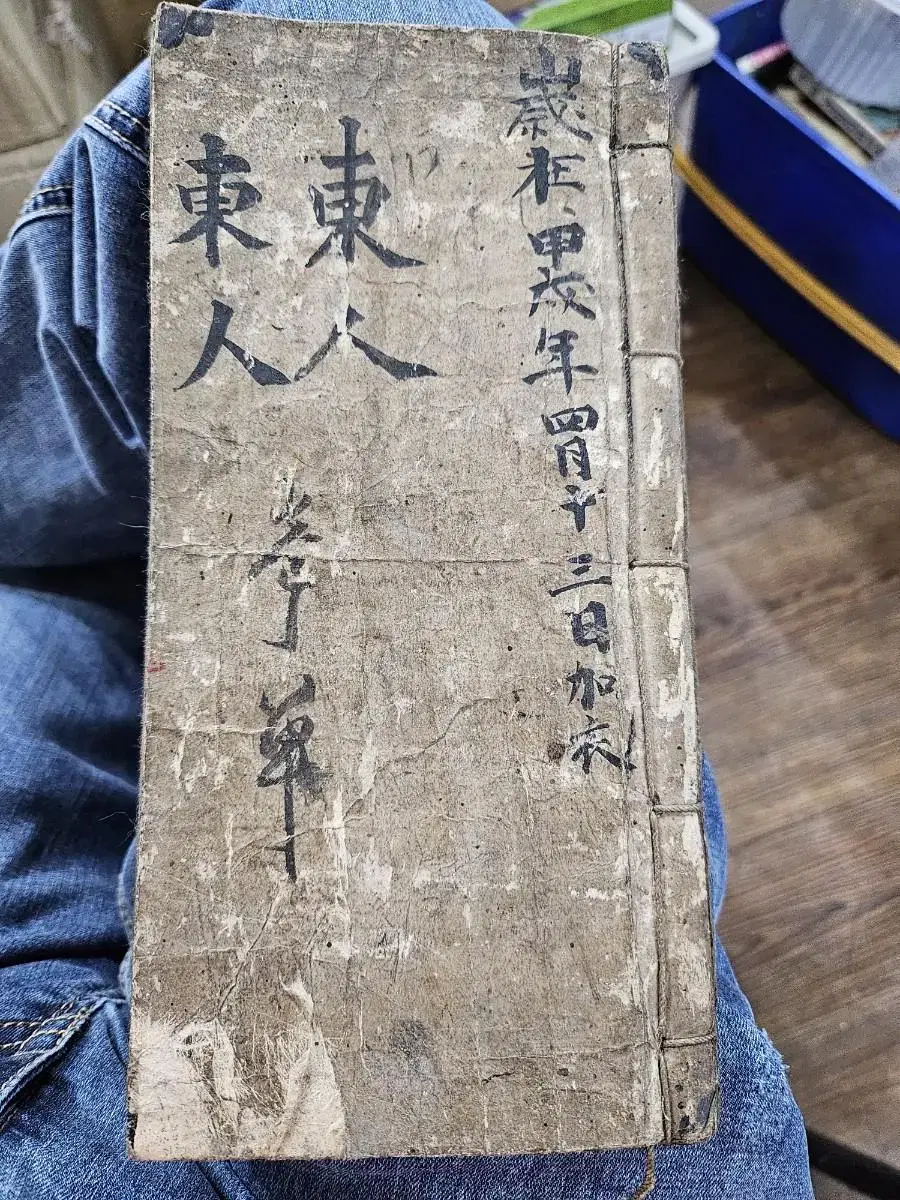 歲在甲戌年四月十三日加衣
東人
東人